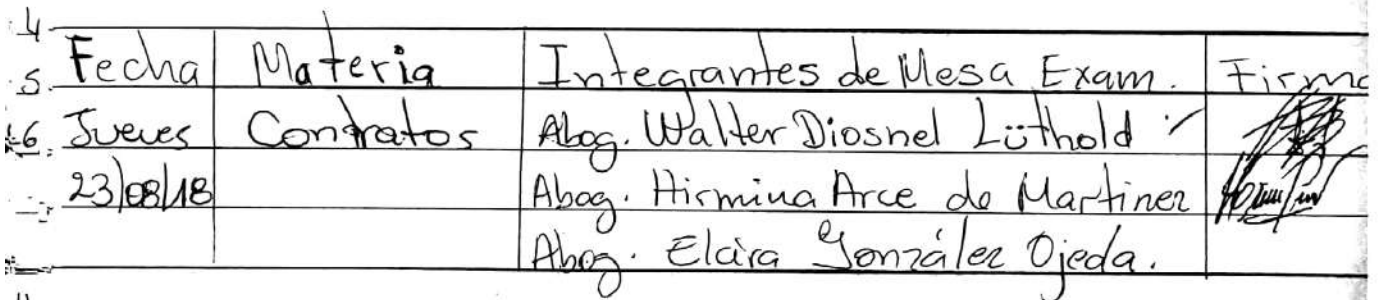 4
5 Fecha Materia Integrantes de Mesa Exam. Firma
6 Jueves Contratos Abog. Walter Diosnel Lüthold
23/08/18 Abog. Hirmina Arce de Martinez
Abog. Elcira González Ojeda.